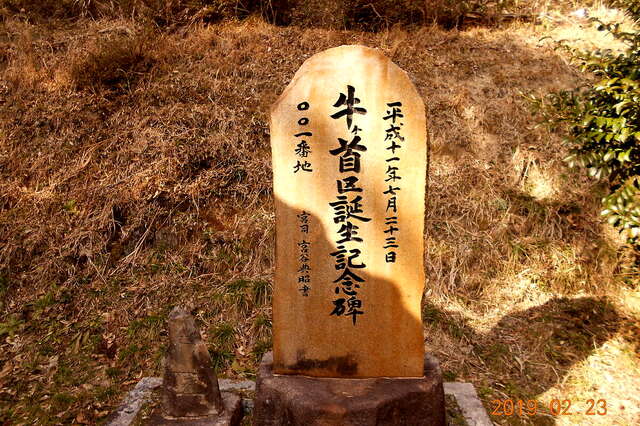 平成十一年七月二十三日
牛ヶ首区誕生記念碑
〇〇一番地
宮司
書
2019 02 23